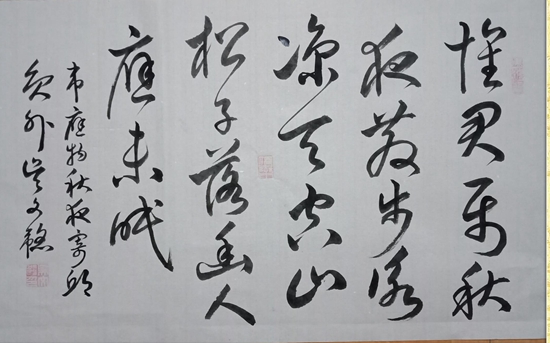 懷君屬秋
夜散步詠
涼天空山
松子落幽人
應未眠
韋應物秋夜寄邱
員外